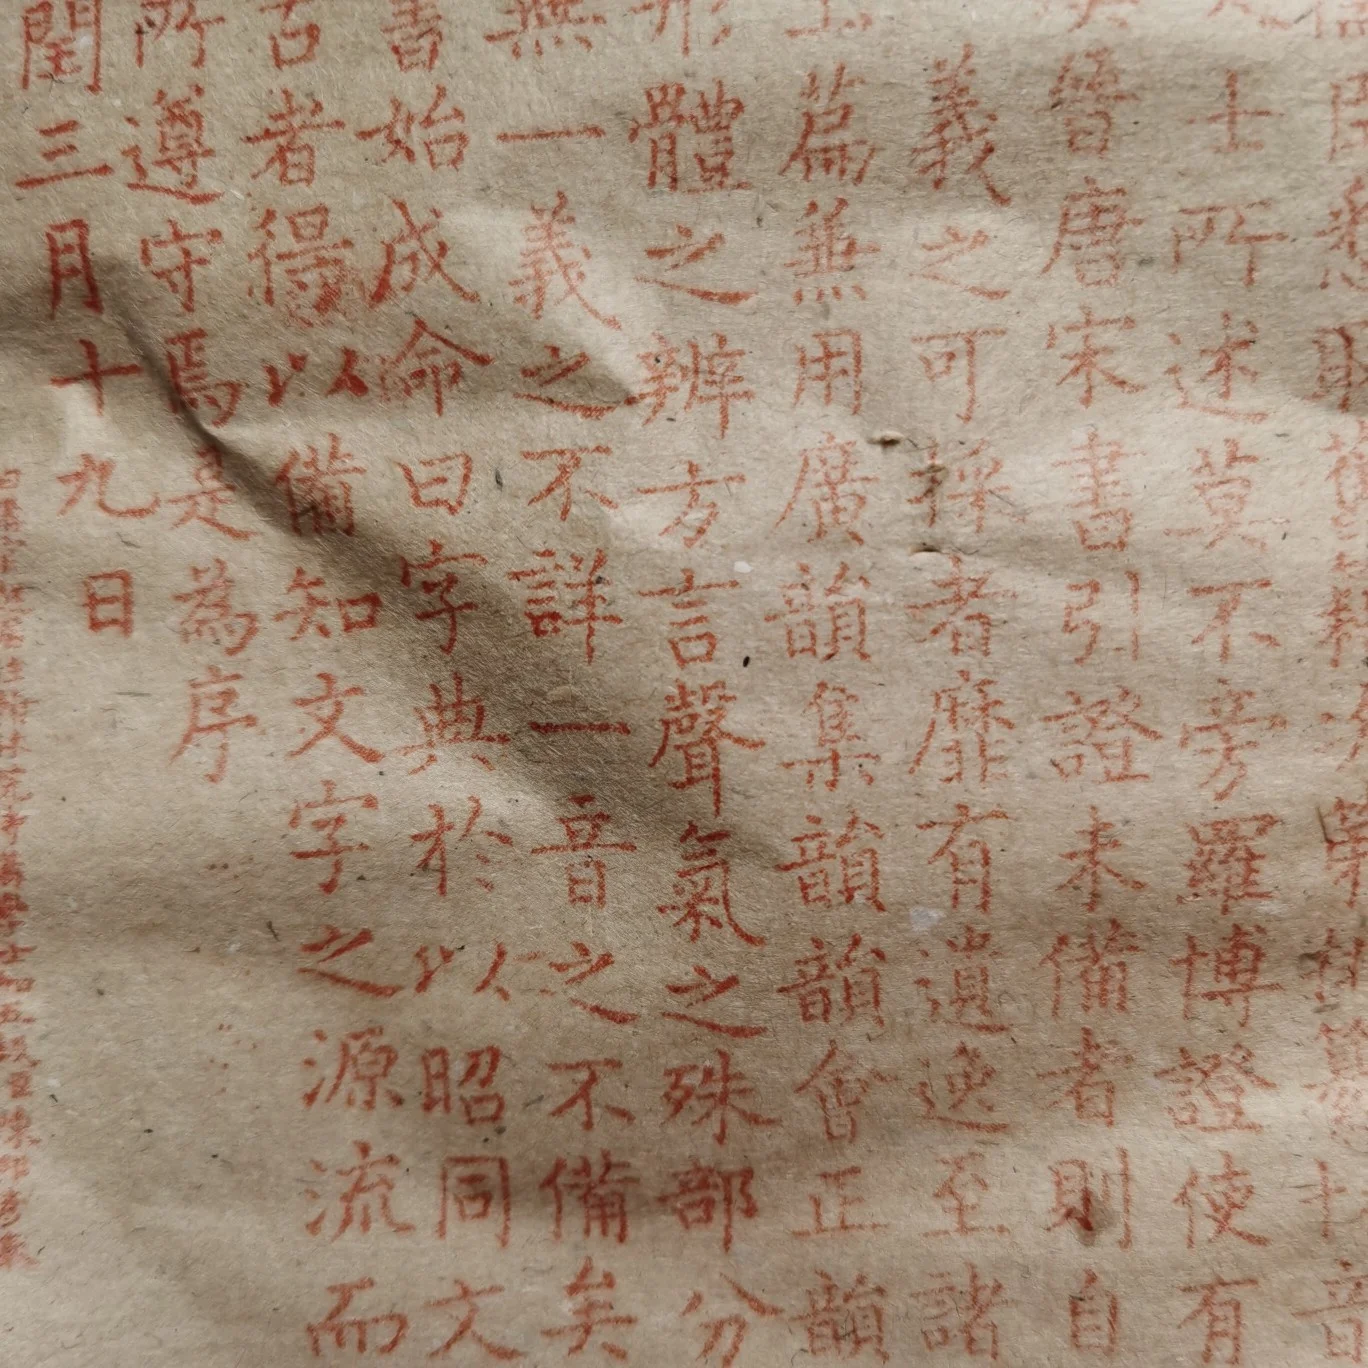 臣悉取舊籍次第排纂切音
士所述莫不旁羅博證使有
晉唐宋書引證未備者則自
義之可採者靡有遺逸至諸
玉篇兼用廣韻集韻韻會正韻
形體之辨方言聲氣之殊部分
無一義之不詳一音之不備矣
書始成命曰字典於以昭同文
古者得以備知文字之源流而
所遵守焉是為序
閏三月十九日